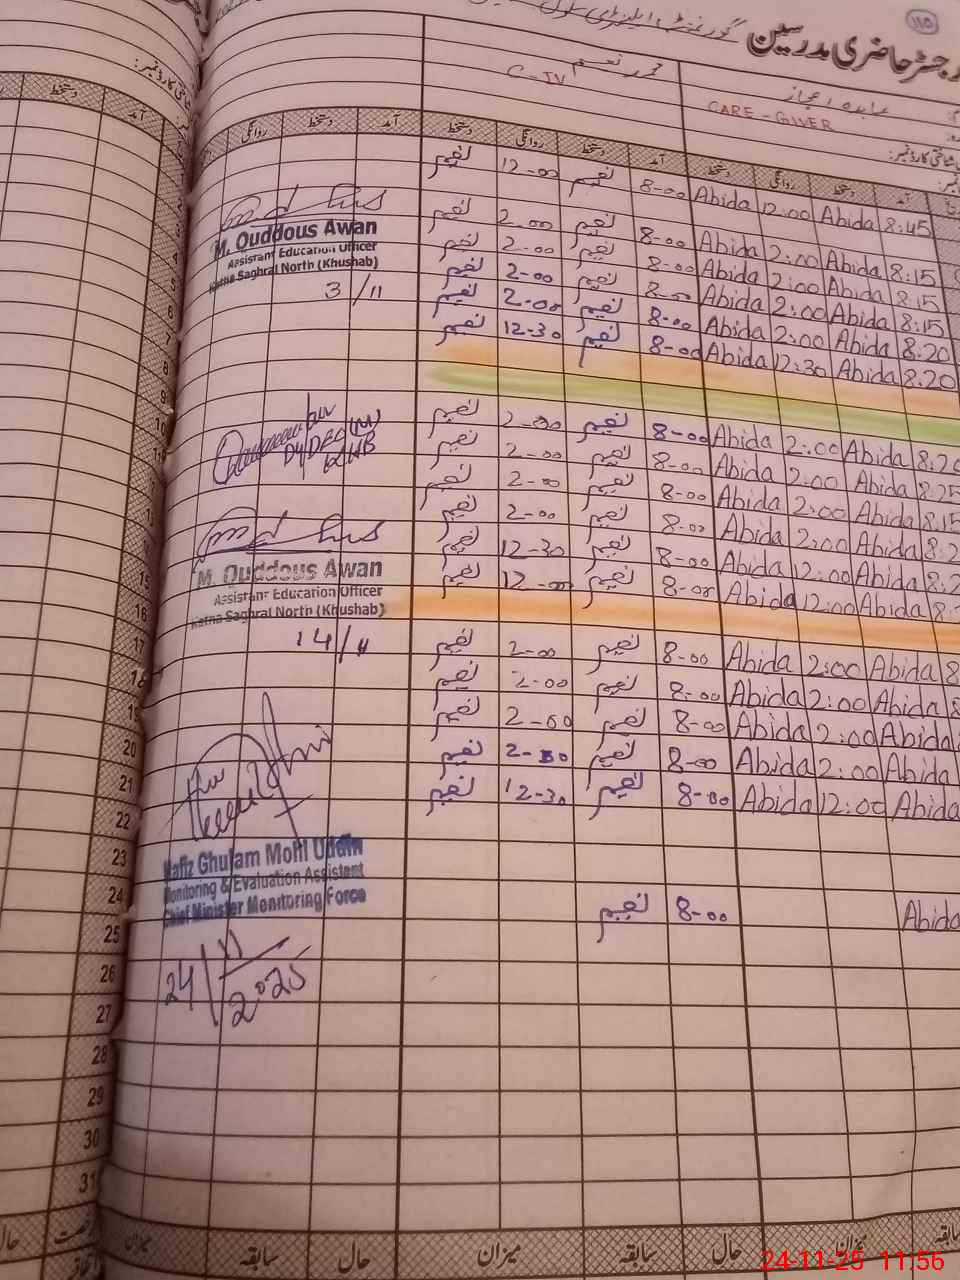 115
رجسٹر حاضری مدرسین گورنمنٹ ایلیمنٹری سکول
عابدہ اعجاز محمد نعیم
CARE - GIVER C-IV
شناختی کارڈ نمبر:
آمد دستخط روانگی دستخط آمد دستخط روانگی دستخط آمد دستخط روانگی
8:45 Abida 12:00 Abida 8-00 نعیم 12-00 نعیم
8:15 Abida 2:00 Abida 8-00 نعیم 2-00 نعیم
8:15 Abida 2:00 Abida 8-00 نعیم 2-00 نعیم
8:15 Abida 2:00 Abida 8-00 نعیم 2-00 نعیم
8:20 Abida 2:00 Abida 8-00 نعیم 2-00 نعیم
8:20 Abida 12:30 Abida 8-00 نعیم 12-30 نعیم
8:20 Abida 2:00 Abida 8-00 نعیم 2-00 نعیم
8:25 Abida 2:00 Abida 8-00 نعیم 2-00 نعیم
8:15 Abida 2:00 Abida 8-00 نعیم 2-00 نعیم
8:2 Abida 2:00 Abida 8-00 نعیم 2-00 نعیم
8:2 Abida 12:00 Abida 8-00 نعیم 12-30 نعیم
8: Abida 12:00 Abida 8-00 نعیم 12-00 نعیم
8 Abida 2:00 Abida 8-00 نعیم 2-00 نعیم
8 Abida 2:00 Abida 8-00 نعیم 2-00 نعیم
Abida 2:00 Abida 8-00 نعیم 2-00 نعیم
Abida 2:00 Abida 8-00 نعیم 2-00 نعیم
Abida 12:00 Abida 8-00 نعیم 12-30 نعیم
Abida 8-00 نعیم
M. Quddous Awan
Assistant Education Officer
Katha Saghral North (Khushab)
3/11
Dy DEO (M)
KHB
M. Quddous Awan
Assistant Education Officer
Katha Saghral North (Khushab)
14/11
Hafiz Ghulam Mohi Uddin
Monitoring & Evaluation Assistant
Chief Minister Monitoring Force
24/11/2025
شناختی کارڈ نمبر:
آمد دستخط
2
3
4
5
6
7
8
9
10
15
16
17
18
19
20
21
22
23
24
25
26
27
28
29
30
31
سابقہ میزان حال سابقہ میزان حال سابقہ میزان
حال
24-11-25 11:56